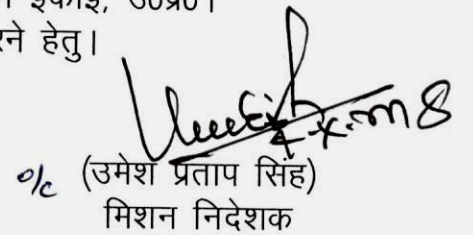 इकाई, उ०प्र०।
हेतु।
o/c (उमेश प्रताप सिंह)
मिशन निदेशक